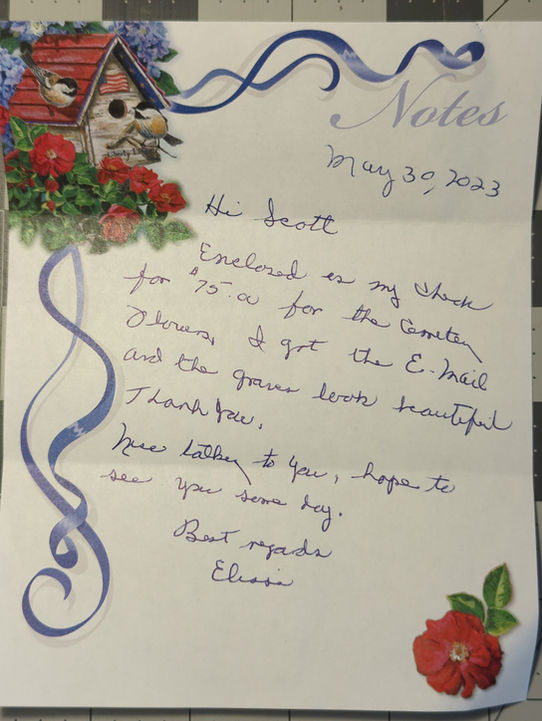 Notes
May 30, 2023
Hi Scott
Enclosed is my check
for $75.00 for the Cemetery
Flowers, I got the E-Mail
and the graves look beautiful
Thank you.
Nice talking to you, hope to
see you some day.
Best regards